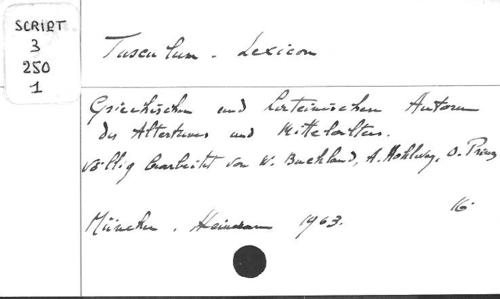 SCRIPT
3
250
1
Tusculum - Lexicon
Griechischen und lateinischen Autoren
des Altertums und Mittelalters.
völlig bearbeitet von W. Buchland, A. Hohlweg, O. Prinz
München. Heimeran 1963.
16